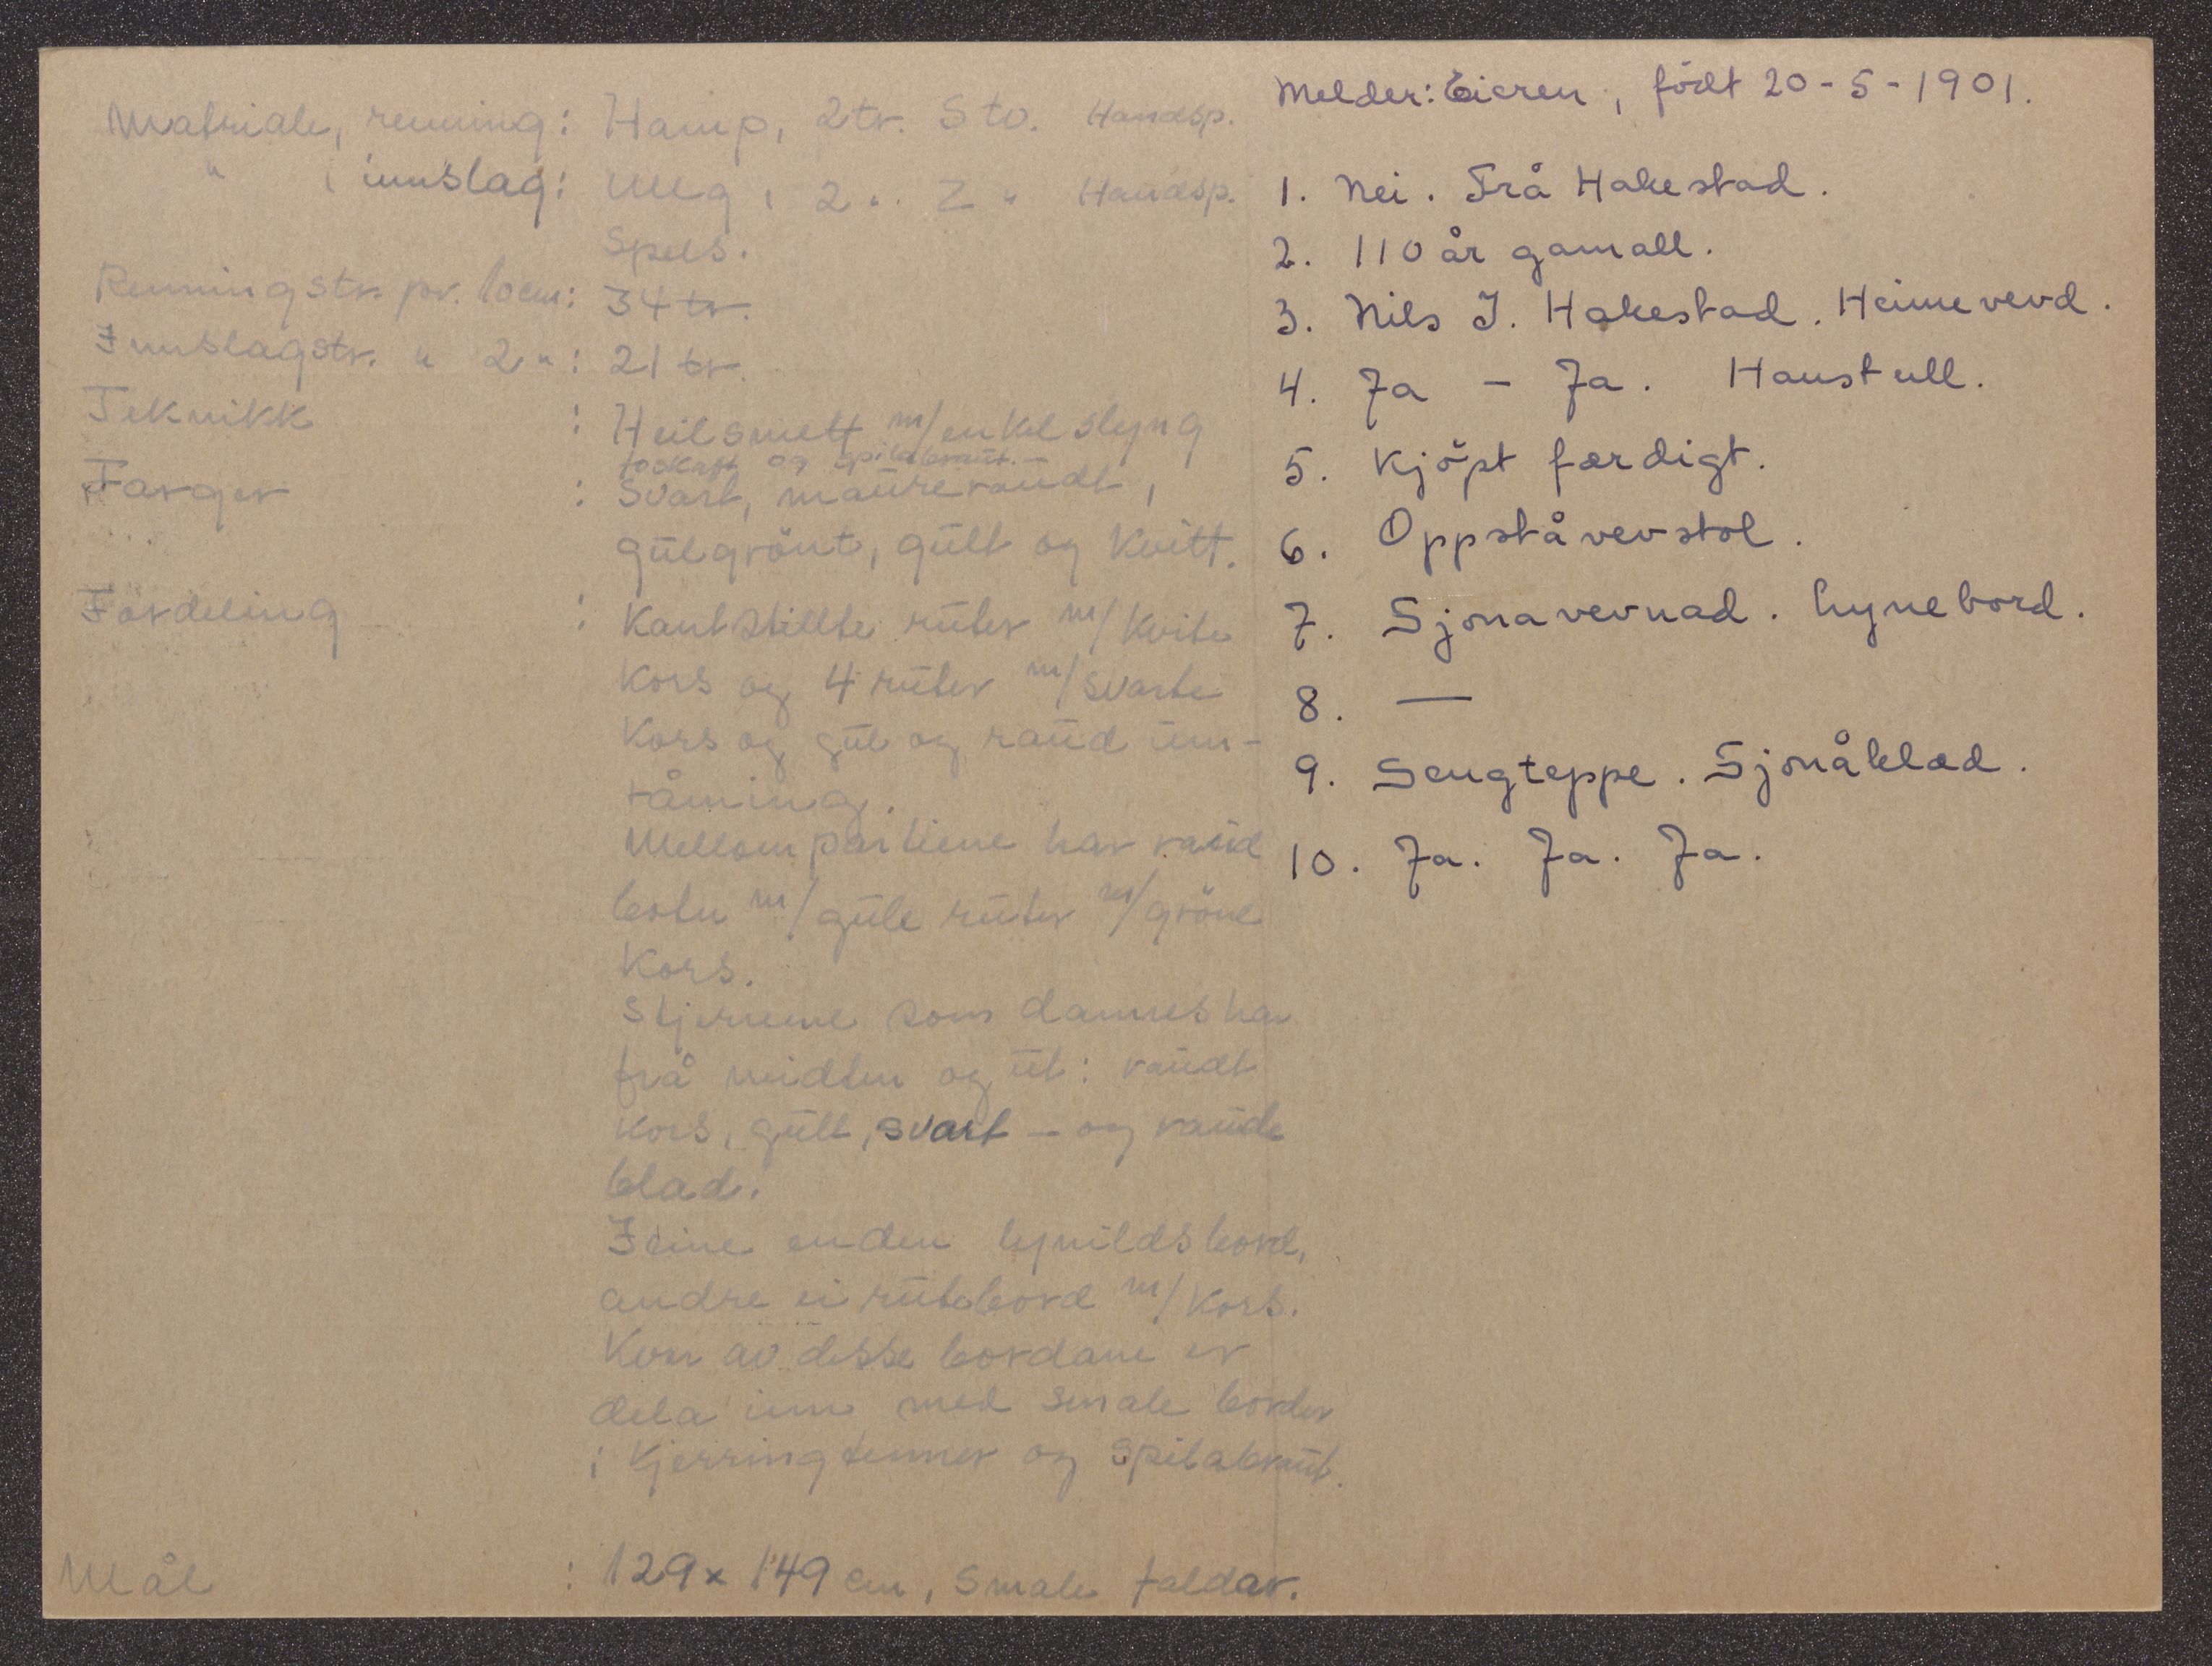 Matriale, renning: Hamp, 2tr. Sto. Handsp.
" , innslag: Ullg, 2 ". Z " Handsp.
Spels.
Renningstr. pr. 10cm: 34 tr.
Innslagstr. " 2 ": 21 tr.
Teknikk : Heilsmett m/enkel slyng
toskaft og spilabraut.-
Farger : Svart, maureraudt,
gulgrönt, gult og kvitt.
Fordeling : Kantstillte ruter m/kvite
kors og 4 ruter m/svarte
kors og gul og raud inn-
råming.
Mellompartiene har raud
botn m/gule ruter m/gröne
kors.
Stjernene som dannes har
frå midten og ut: raudt
kors, gult, svart - og raude
blad.
I eine enden lynildsbord,
andre ei rutebord m/kors.
Kver av desse bordane er
dela inn med smale border
i kjerringtenner og spilabraut.
Mål : 129x149 cm, smale faldar.
Melder: Eieren, födt 20-5-1901.
1. Nei. Frå Hakestad.
2. 110 år gamall.
3. Nils J. Hakestad. Heimevevd.
4. Ja - Ja. Haustull.
5. Kjöpt færdigt.
6. Oppståvevstol.
7. Sjonavevnad. Lynebord.
8. —
9. Sengteppe. Sjonåklæd.
10. Ja. Ja. Ja.